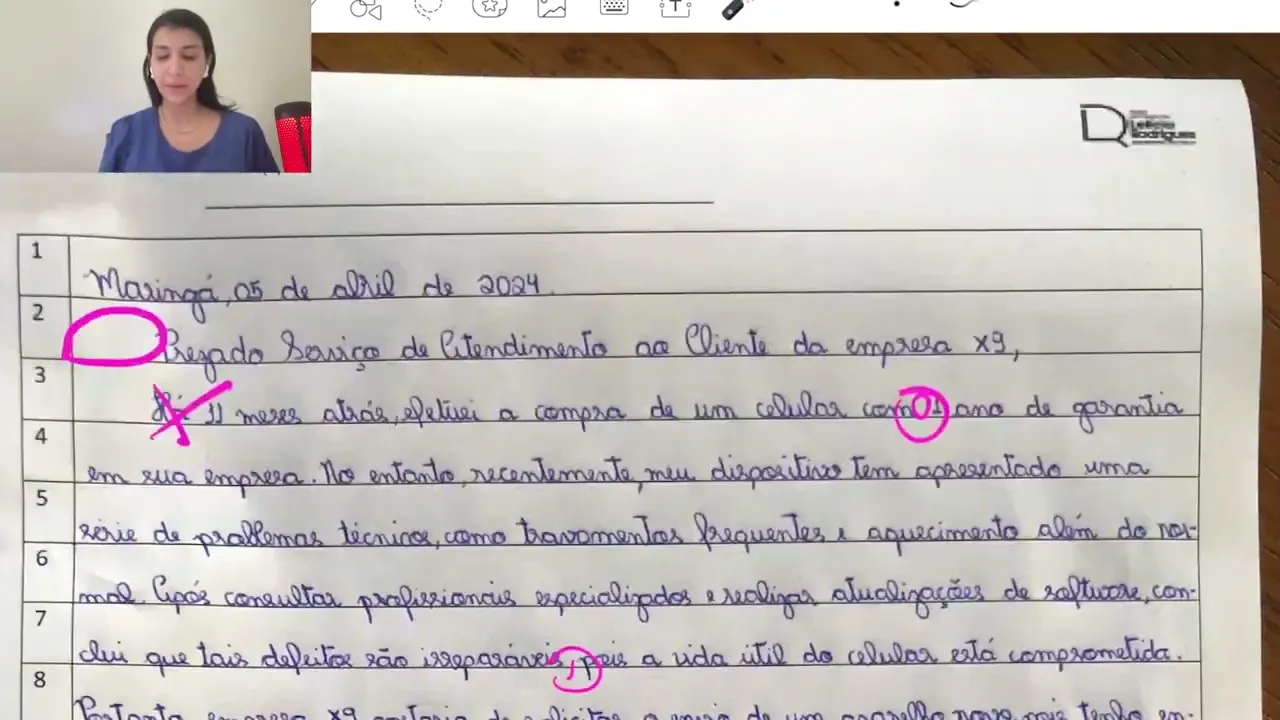 Letícia
Rodrigues
1 Maringá, 05 de abril de 2024.
2 Prezado Serviço de Atendimento ao Cliente da empresa X9,
3 Há 11 meses atrás, efetuei a compra de um celular com 01 ano de garantia
4 em sua empresa. No entanto, recentemente, meu dispositivo tem apresentado uma
5 série de problemas técnicos, como travamentos frequentes e aquecimento além do nor-
6 mal. Após consultar profissionais especializados e realizar atualizações de software, con-
7 clui que tais defeitos são irreparáveis, pois a vida útil do celular está comprometida.
8 Portanto, empresa X9, gostaria de solicitar o envio de um aparelho novo, pois tenho en-